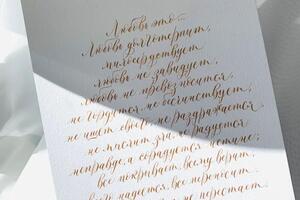 Любовь это...
Любовь долготерпит,
милосердствует,
любовь не завидует,
любовь не превозносится,
не гордится, не бесчинствует,
не ищет своего, не раздражается
не мыслит зла, не радуется
неправде, а сорадуется истине;
все покрывает, всему верит,
всего надеется, все переносит.
не перестает